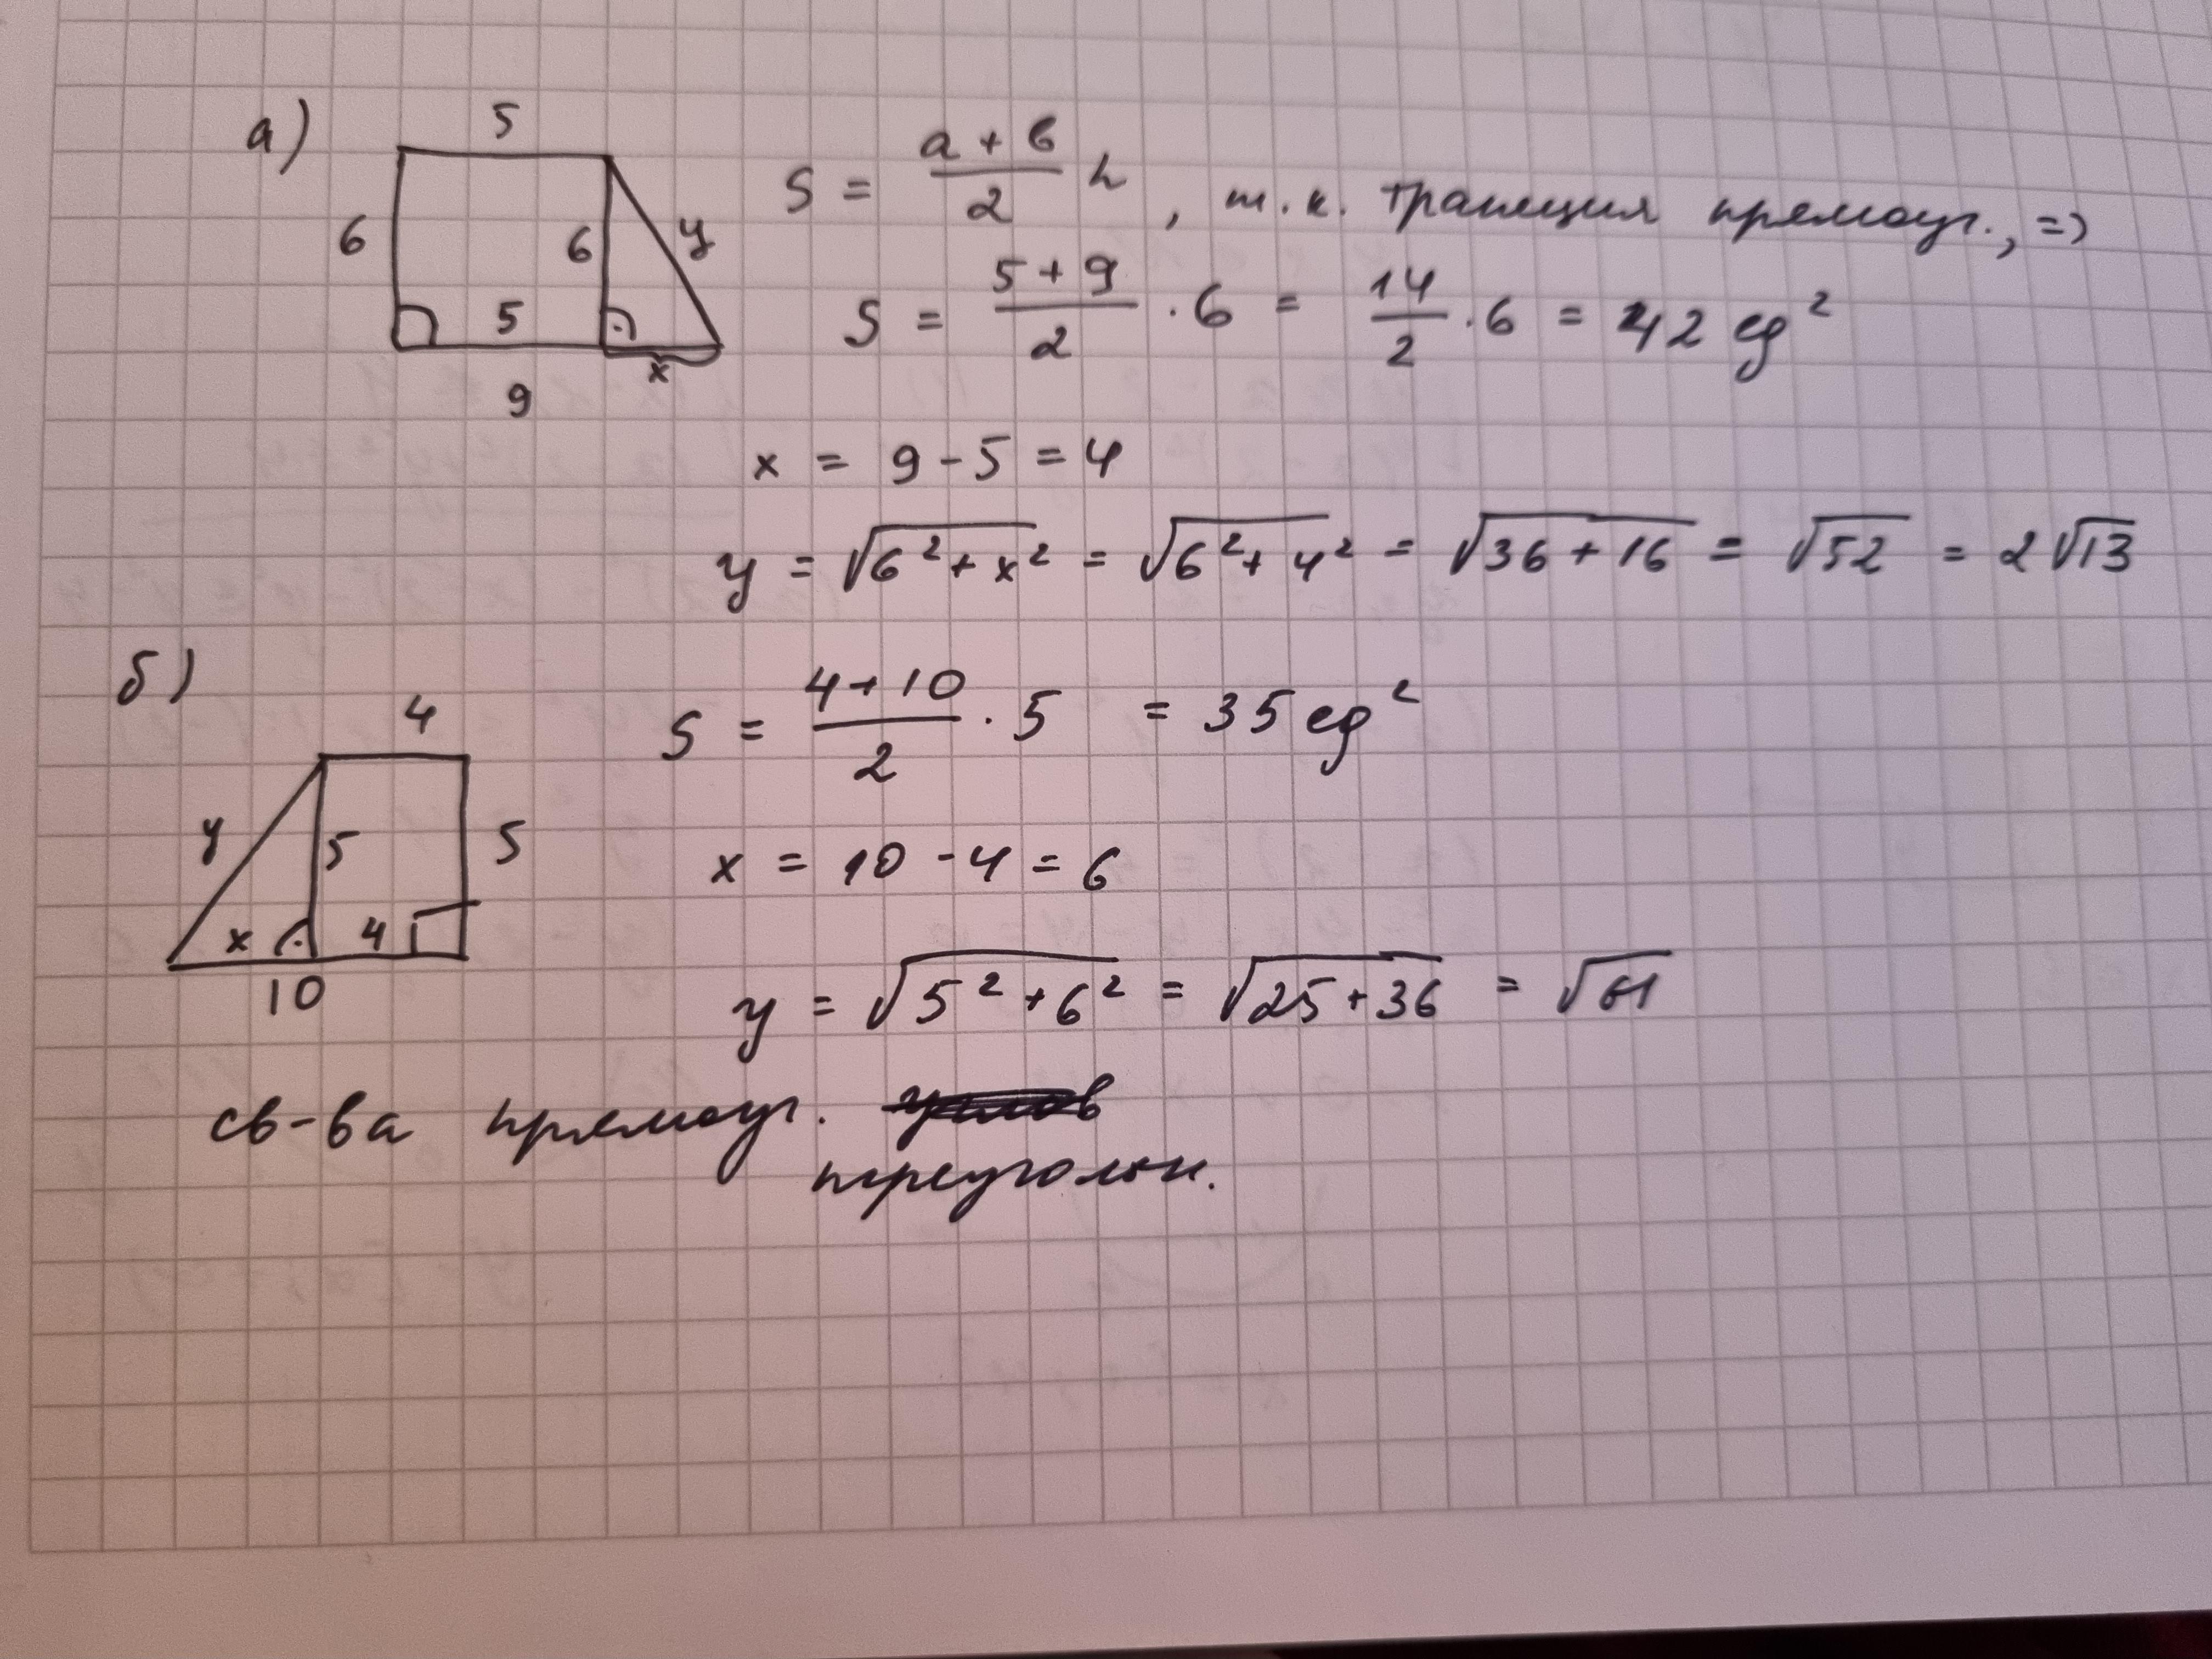 а)
5
6
6
y
5
x
9
S = (a + b)/2 h , т.к. трапеция прямоуг., =>
S = (5 + 9)/2 · 6 = 14/2 · 6 = 42 ед²
x = 9 - 5 = 4
y = √(6² + x²) = √(6² + 4²) = √(36 + 16) = √52 = 2√13
б)
4
y
5
5
x
4
10
S = (4 + 10)/2 · 5 = 35 ед²
x = 10 - 4 = 6
y = √(5² + 6²) = √(25 + 36) = √61
св-ва прямоуг.
треугольн.